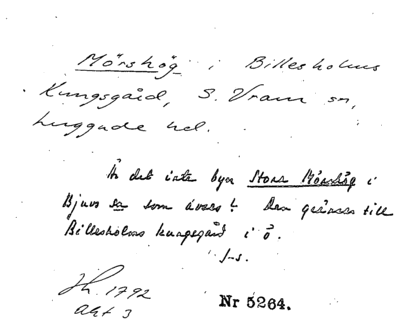 Mörshög i Billesholms
Kungsgård, S. Vram sn,
huggade hel.
Är det inte byn Stora Mörshög i
Bjuvs sn som avses? Den gränsar till
Billesholms kungsgård i ö.
J-s.
Jh. 1792
akt 3
Nr 5264.